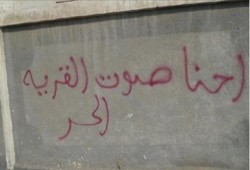 احنا صوت القريه
الحر